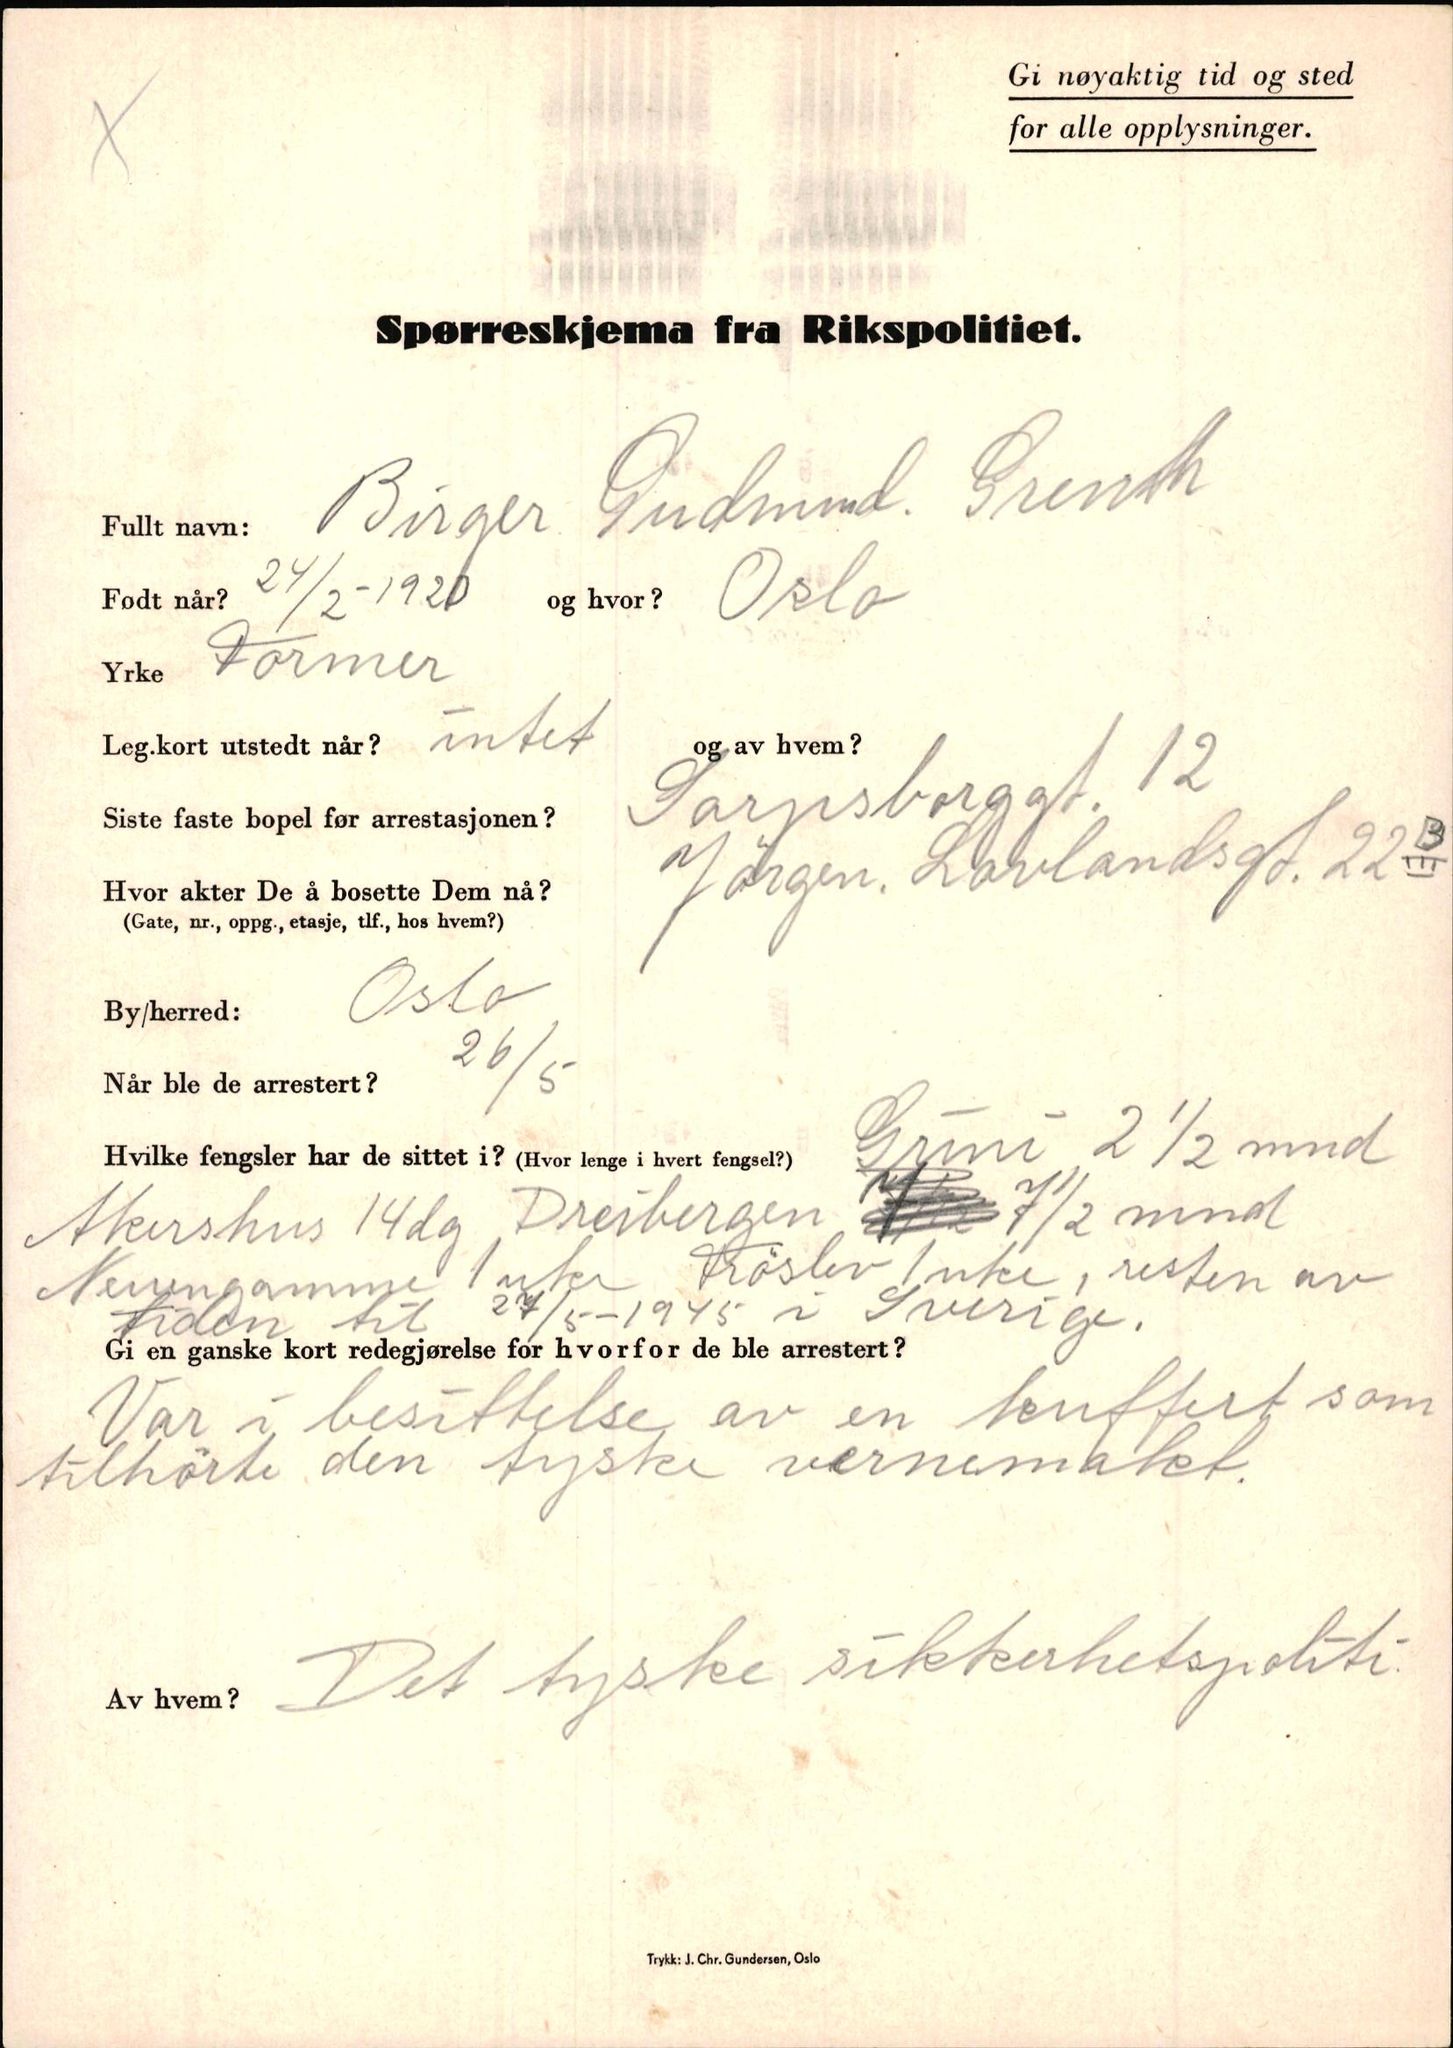 Gi nøyaktig tid og sted
for alle opplysninger.
Spørreskjema fra Rikspolitiet.
Fullt navn: Birger Gudmund. Grenth
Født når? 24/2-1920 og hvor? Oslo
Yrke Former
Leg.kort utstedt når? intet og av hvem?
Siste faste bopel før arrestasjonen? Sarpsborggt. 12
Hvor akter De å bosette Dem nå? Jörgen. Lovlandsgt. 22 B III
(Gate, nr., oppg., etasje, tlf., hos hvem?)
By/herred: Oslo
Når ble de arrestert? 26/5
Hvilke fengsler har de sittet i? (Hvor lenge i hvert fengsel?) Grini 2 1/2 mnd
Akershus 14 dg Dreibergen 7 1/2 mnd
Neuengamme 1 uke Fröslev 1 uke, resten av
tiden til 27/5-1945 i Sverige.
Gi en ganske kort redegjørelse for hvorfor de ble arrestert?
Var i besittelse av en kuffert som
tilhörte den tyske vernemakt.
Av hvem? Det tyske sikkerhetspoliti.
Trykk: J. Chr. Gundersen, Oslo